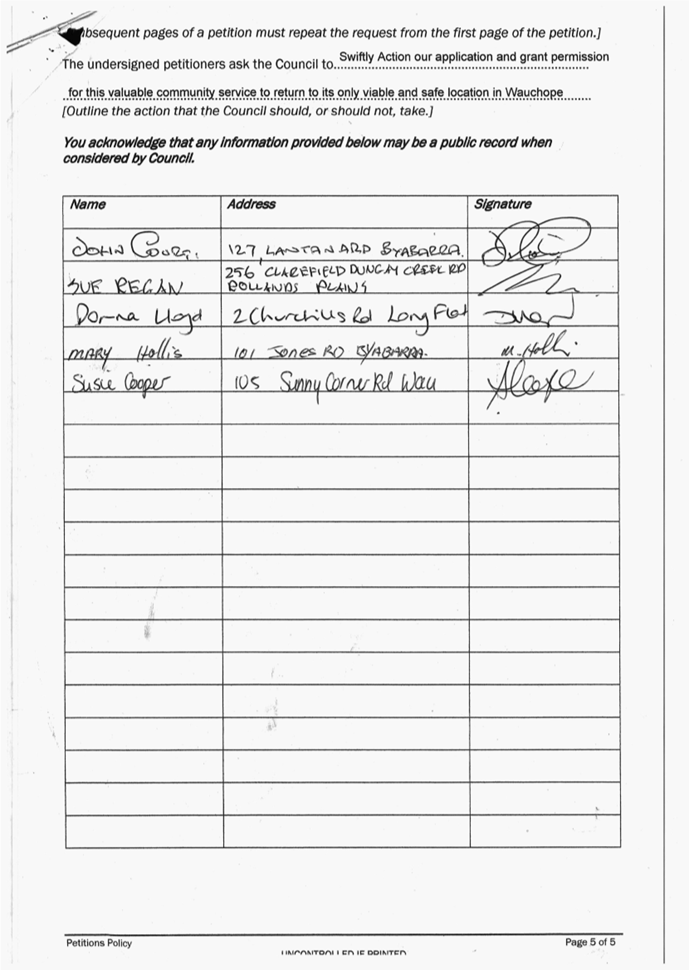 bsequent pages of a petition must repeat the request from the first page of the petition.]
The undersigned petitioners ask the Council to Swiftly Action our application and grant permission
for this valuable community service to return to its only viable and safe location in Wauchope
[Outline the action that the Council should, or should not, take.]
You acknowledge that any information provided below may be a public record when
considered by Council.
Name Address Signature
JOHN 127, LANTANA RD BYABARRA.
256 CLAREFIELD DUNGAY CREEK RD
SUE REGAN ROLLANDS PLAINS
Donna Lloyd 2 Churchills Rd Long Flat
MARY Hollis 101 Jones RD BYABARRA. M. Holli
Susie Cooper 105 Sunny Corner Rd Wau
Petitions Policy Page 5 of 5
UNCONTROLLED IF PRINTED